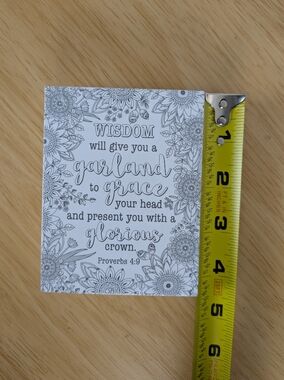 WISDOM
will give you a
garland
to grace
your head
and present you with a
glorious
crown.
Proverbs 4:9
1
2
3
4
5
6